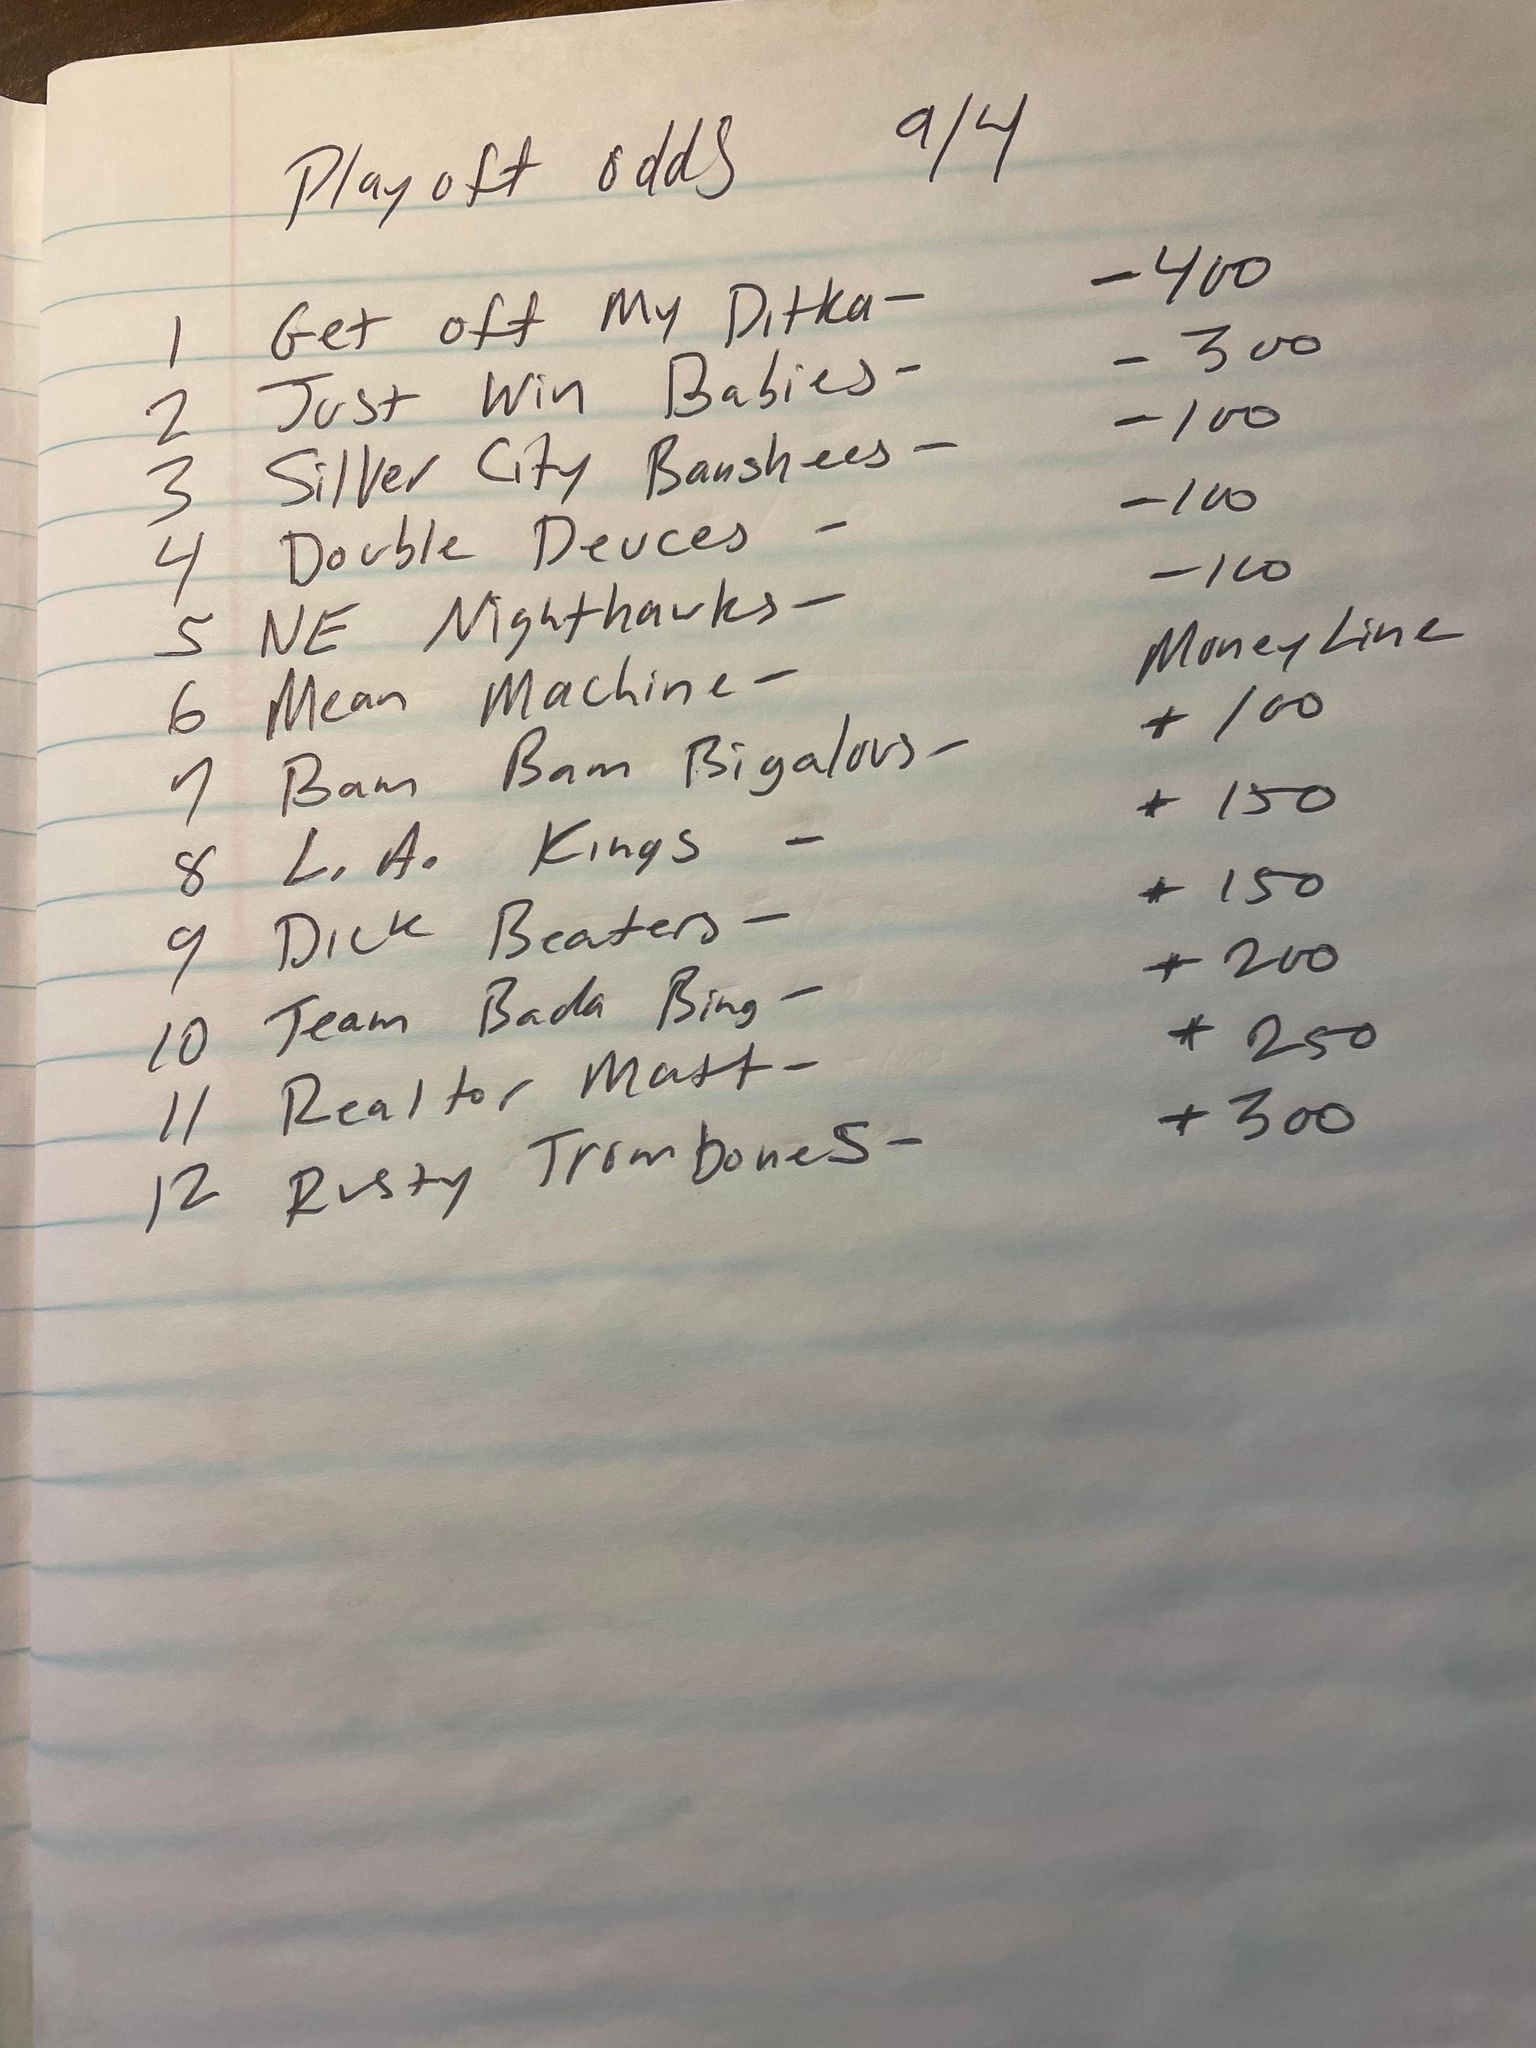 Playoff odds 9/4
1 Get off My Ditka - -400
2 Just Win Babies - -300
3 Silver City Banshees - -100
4 Double Deuces - -100
5 NE Nighthawks - -100
6 Mean Machine - MoneyLine
7 Bam Bam Bigalous - +100
8 L.A. Kings - +150
9 Dick Beaters - +150
10 Team Bada Bing - +200
11 Realtor Matt - +250
12 Rusty Trombones - +300